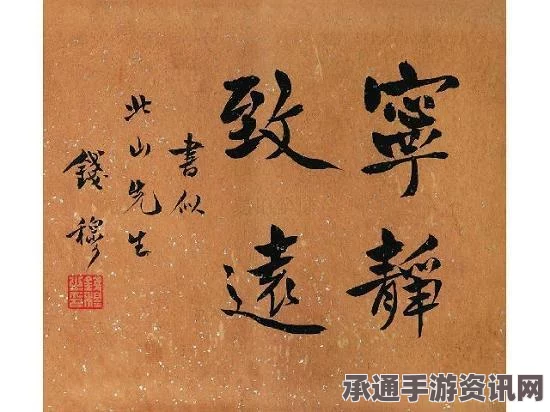 寧靜
致遠
書似
此山先生
錢穆
承通手游资讯网